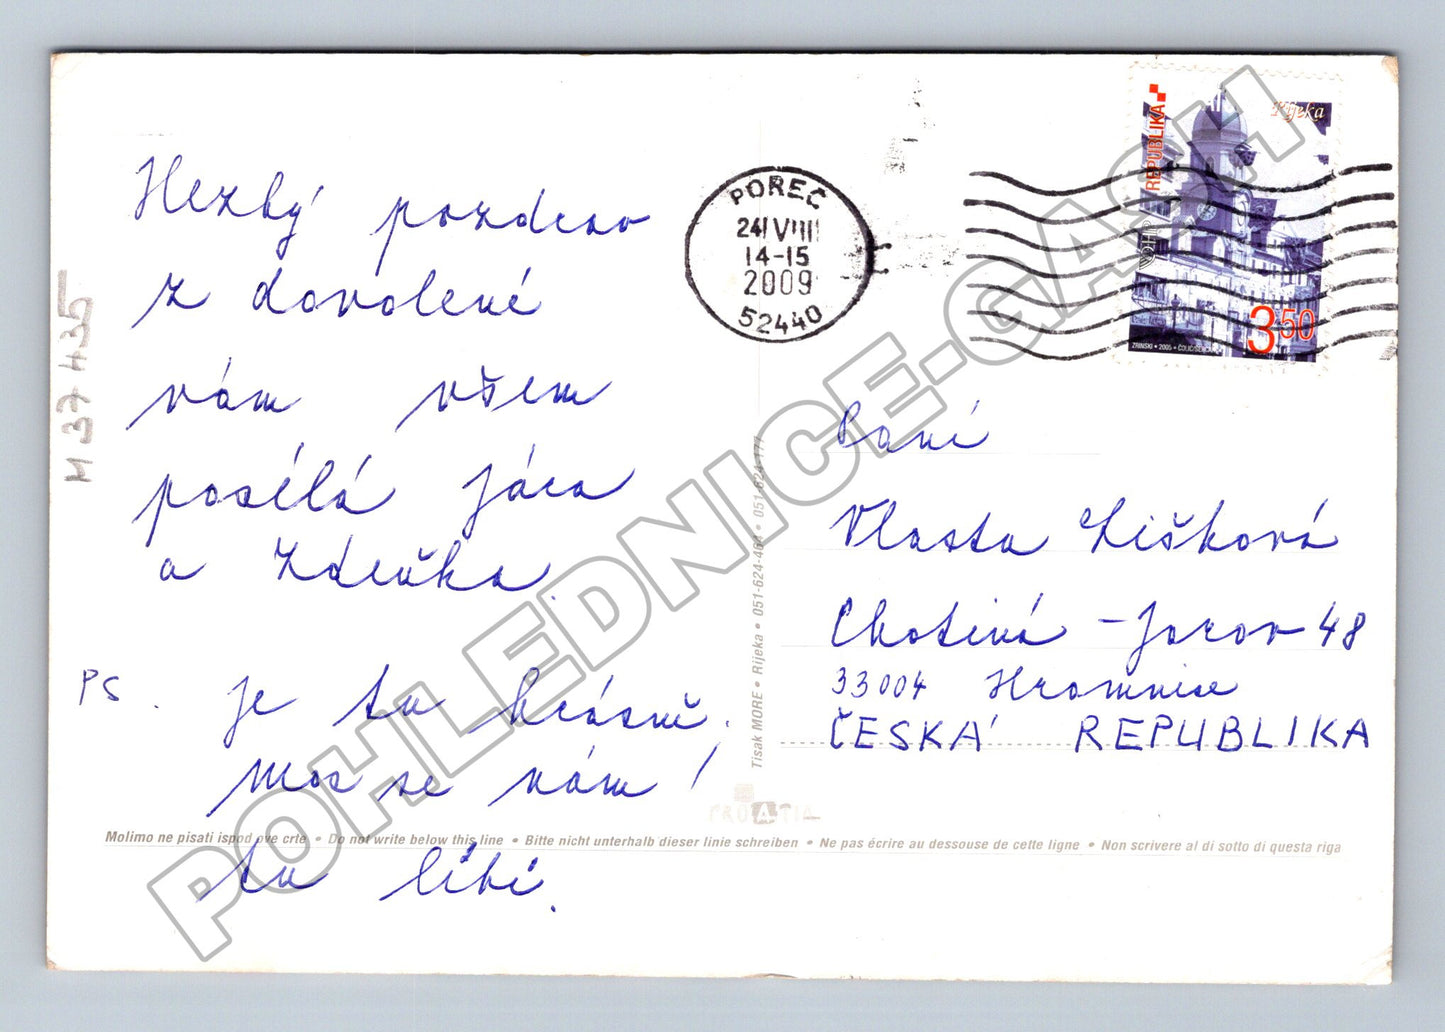 Hezký pozdrav
z dovolené
vám všem
posílá Jára
a Zdeňka.
PS. je tu krásně,
moc se nám!
tu líbí.
M 37 435
POREČ
24 VIII
14-15
2009
52440
REPUBLIKA
Rijeka
3,50
ZRINSKI • 2005 •
Paní
Vlasta Lišková
Chotiná - Jarov 48
33004 Hromnice
ČESKÁ REPUBLIKA
Tisak MORE • Rijeka • 051-624-464 • 051-624-177
CROATIA
Molimo ne pisati ispod ove crte • Do not write below this line • Bitte nicht unterhalb dieser linie schreiben • Ne pas écrire au dessouse de cette ligne • Non scrivere al di sotto di questa riga
POHLEDNICE-GASH